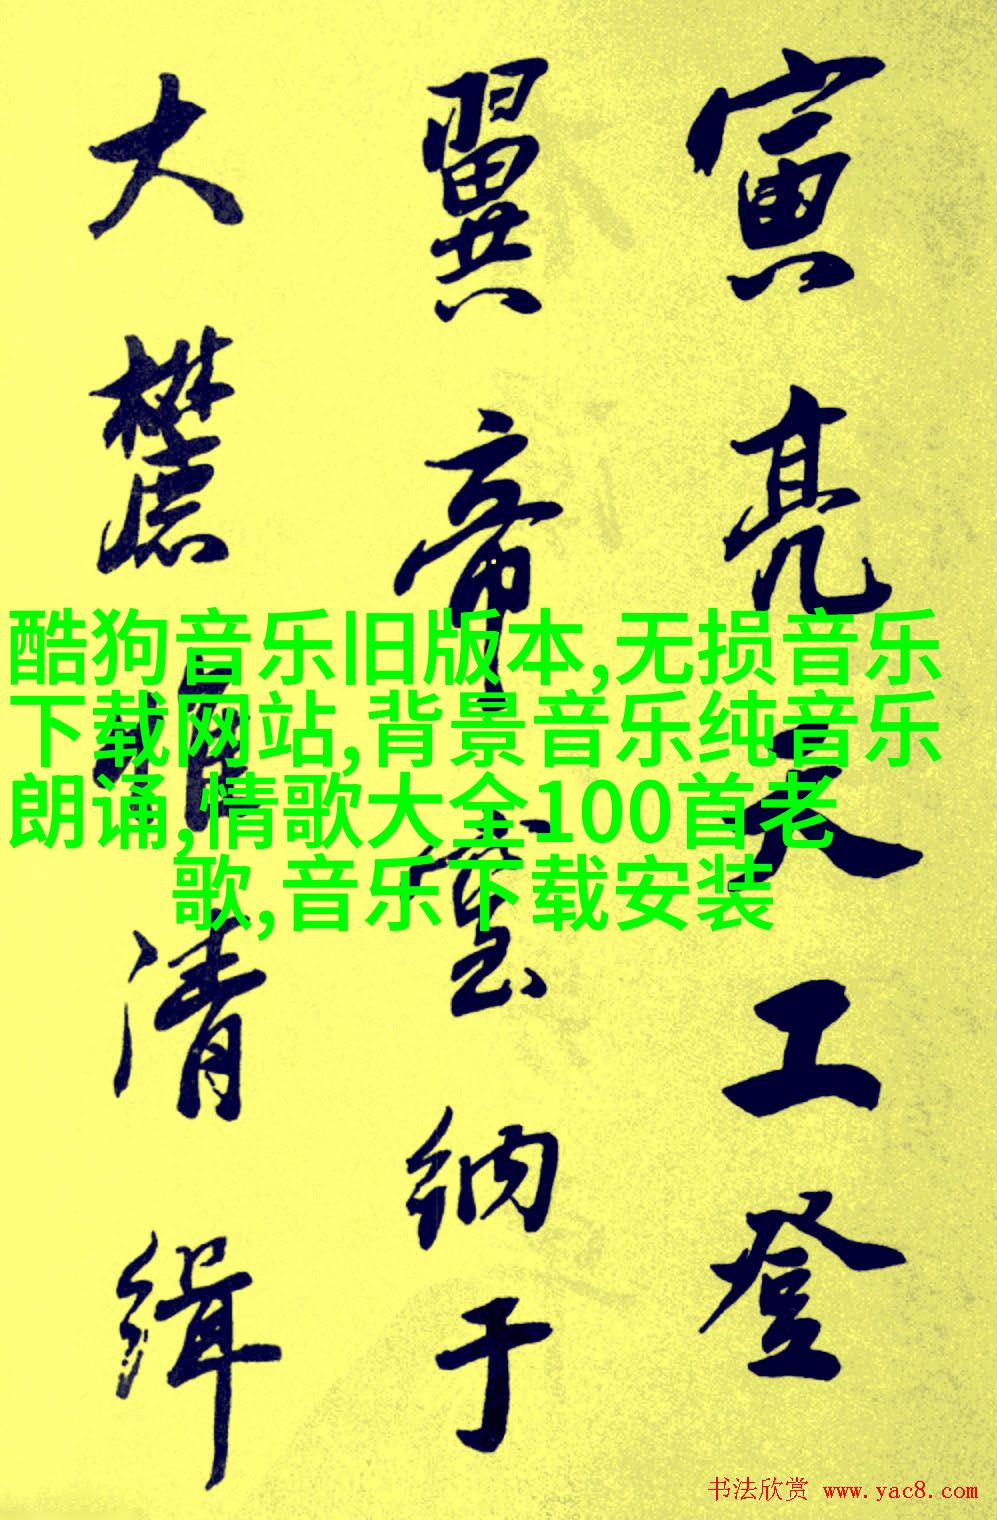 寅亮天工登
翼帝室納于
大麓清緝
酷狗音乐旧版本,无损音乐
下载网站,背景音乐纯音乐
朗诵,情歌大全100首老
歌,音乐下载安装
书法欣赏 www.yac8.com